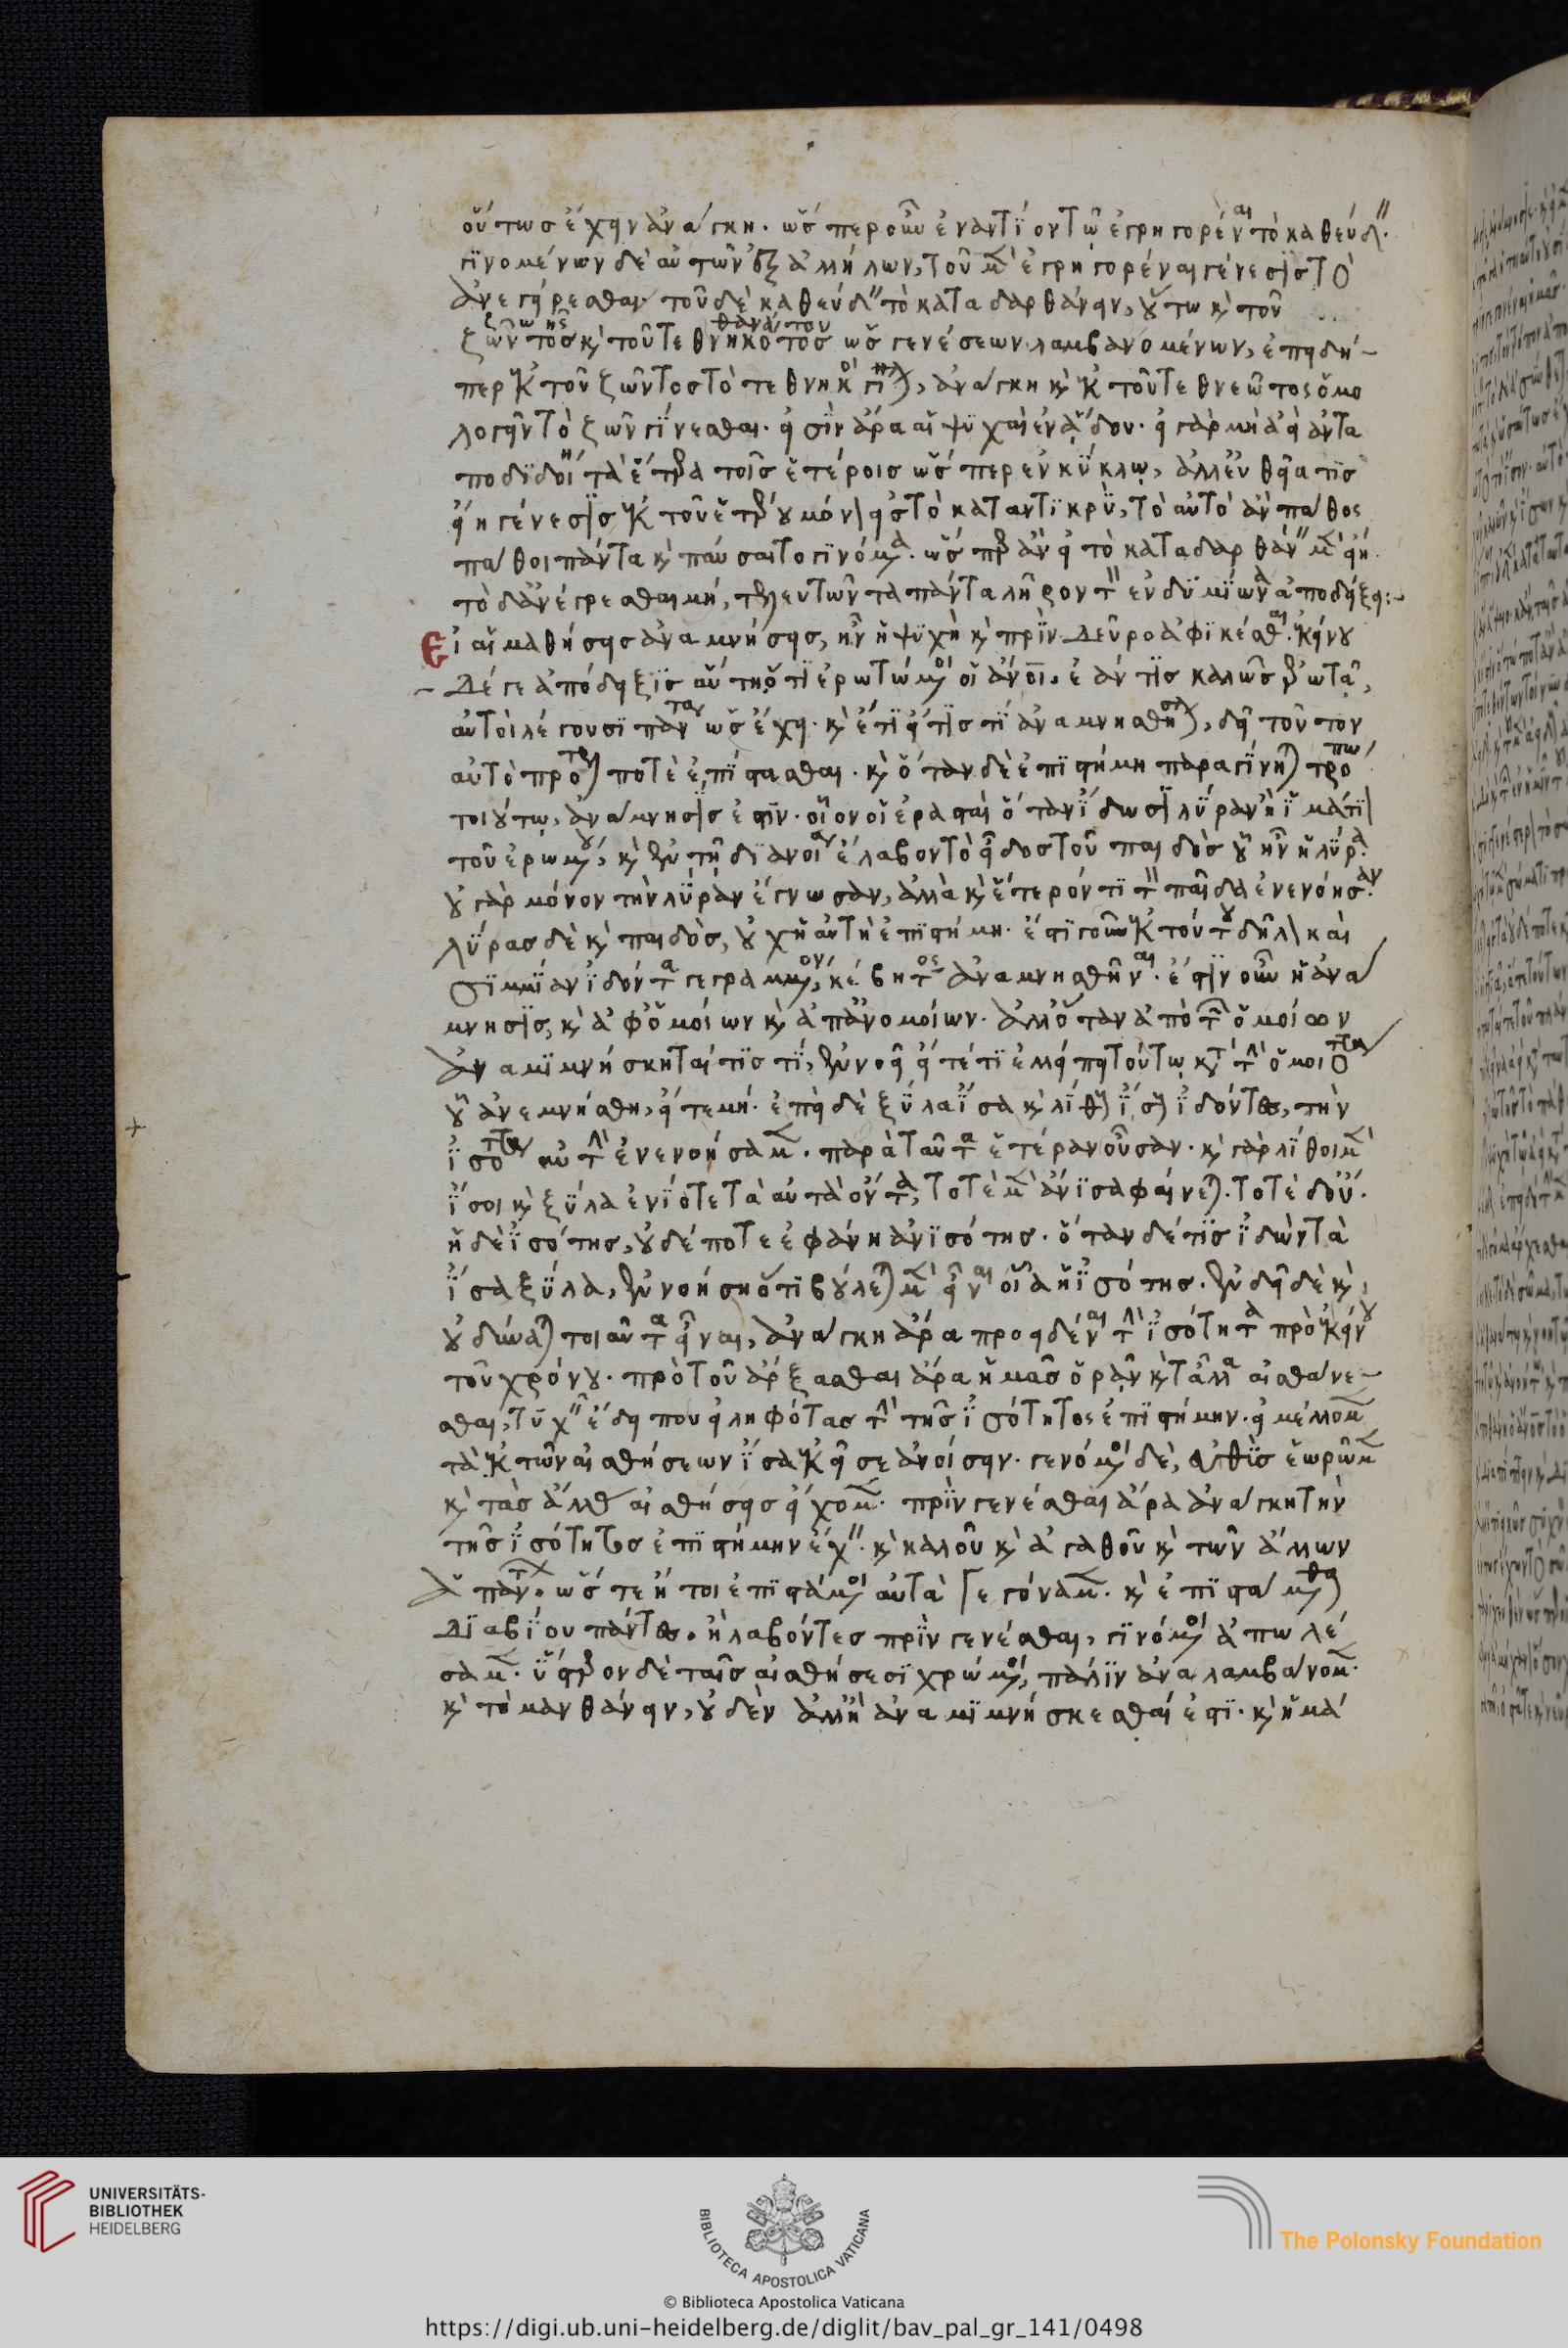 οὕτως ἔχειν ἀνάγκη. ὥσπερ οὖν ἐναντίον τῷ ἐγρηγορέναι τὸ καθεύδειν.
γινομένων δὲ αὐτῶν ἐξ ἀλλήλων, τοῦ μὲν ἐγρηγορέναι γένεσις τὸ
ἀνεγείρεσθαι τοῦ δὲ καθεύδειν τὸ καταδαρθάνειν, οὕτω καὶ τοῦ
ζωῆς θανάτου
ζῶντος καὶ τοῦ τεθνηκότος ὡς γενέσεων λαμβανομένων, ἐπειδή-
περ ἐκ τοῦ ζῶντος τὸ τεθνηκὸς γίνηται, ἀνάγκη καὶ ἐκ τοῦ τεθνεῶτος ὁμο
λογεῖν τὸ ζῶν γίνεσθαι. εἰσὶν ἄρα αἱ ψυχαὶ ἐν ἅδου. εἰ γὰρ μὴ ἀεὶ ἀντα
ποδιδοίη τὰ ἕτερα τοῖς ἑτέροις ὥσπερ ἐν κύκλῳ, ἀλλ' εὐθεῖα τις
εἴη γένεσις ἐκ τοῦ ἑτέρου μόνον εἰς τὸ καταντικρὺ, τὸ αὐτὸ ἂν πάθος
πάθοι πάντα καὶ παύσαιτο γινόμενα. ὥσπερ ἂν εἰ τὸ καταδαρθάνειν μὲν εἴη.
τὸ δ' ἀνέγρεσθαι μή, τελευτῶντα πάντα λῆρον τὸν ἐνδυμίωνα ἀποδείξει:-
Εἰ αἱ μαθήσεις ἀναμνήσεις, ἦν ἡ ψυχὴ καὶ πρὶν δεῦρο ἀφικέσθαι. ἐκείνου
δέ γε ἀπόδειξις αὕτη ὅτι ἐρωτώμενοι οἱ ἄνοι, ἐάν τις καλῶς ἐρωτᾷ,
αὐτοὶ λέγουσι πάντα ὡς ἔχει. καὶ ἔτι εἴ τίς τι ἀναμνησθήσεται, δεῖ τοῦτον
αὐτὸ πρότερον ποτὲ ἐπίστασθαι. καὶ ὅταν δὲ ἐπιστήμη παραγίνηται τρόπῳ
τοιούτῳ, ἀνάμνησις ἐστίν. οἷον οἱ ἐρασταὶ ὅταν ἴδωσι λύραν ἢ ἱμάτιον
τοῦ ἐρωμένου, καὶ ἐν τῇ διανοίᾳ ἔλαβον τὸ εἶδος τοῦ παιδὸς οὗ ἦν ἡ λύρα.
οὐ γὰρ μόνον τὴν λύραν ἔγνωσαν, ἀλλὰ καὶ ἕτερόν τι τὸν παῖδα ἐνενόησαν.
λύρας δὲ καὶ παιδὸς, οὐχ ἡ αὐτὴ ἐπιστήμη. ἔστι γοῦν ἐκ τούτου δῆλον καὶ
σιμμίαν ἰδόντα γεγραμμένον, κέβητος ἀναμνησθῆναι. ἔστιν οὖν ἡ ἀνά
μνησις, καὶ ἀφ' ὁμοίων καὶ ἀπ' ἀνομοίων. ἀλλ' ὅταν ἀπὸ τῶν ὁμοίων
ἀναμιμνήσκηταί τις τι, ἐννοεῖ εἴτέ τι ἐλλείπει τούτῳ κατὰ τὴν ὁμοιότητα
οὗ ἀνεμνήσθη, εἴτε μή. ἐπεὶ δὲ ξύλα ἴσα καὶ λίθους ἴσους ἰδόντες, τὴν
ἰσότητα αὐτὴν ἐνενοήσαμεν. παρὰ ταῦτα ἑτέραν οὖσαν. καὶ γὰρ λίθοι μὲν
ἴσοι καὶ ξύλα ἐνίοτε τὰ αὐτὰ ὄντα, τοτὲ μὲν ἄνισα φαίνεται. τοτὲ δ' οὔ.
ἡ δὲ ἰσότης, οὐδέποτε ἐφάνη ἀνισότης. ὅταν δέ τις ἰδὼν τὰ
ἴσα ξύλα, ἐννοήσῃ ὅτι βούλεται μὲν εἶναι οἷα ἡ ἰσότης. ἐνδεῖ δὲ καὶ
οὐ δύναται τοιαῦτα εἶναι, ἀνάγκη ἄρα προειδέναι τὴν ἰσότητα πρὸ ἐκείνου
τοῦ χρόνου. πρὸ τοῦ ἄρξασθαι ἄρα ἡμᾶς ὁρᾶν καὶ τἄλλα αἰσθάνε-
σθαι, τυχεῖν ἔδει που εἰληφότας τὴν τῆς ἰσότητος ἐπιστήμην. εἰ μέλλομεν
τὰ ἐκ τῶν αἰσθήσεων ἴσα ἐκεῖσε ἀνοίσειν. γενόμενοι δὲ, εὐθὺς ἑωρῶμεν
καὶ τὰς ἄλλας αἰσθήσεις εἴχομεν. πρὶν γενέσθαι ἄρα ἀνάγκη τὴν
τῆς ἰσότητος ἐπιστήμην ἔχειν. καὶ καλοῦ καὶ ἀγαθοῦ καὶ τῶν ἄλλων
ἁπάντων. ὥστε ἤτοι ἐπιστάμενοι αὐτὰ γεγόναμεν. καὶ ἐπιστάμεθα
διὰ βίου πάντες. ἢ λαβόντες πρὶν γενέσθαι, γινόμενοι ἀπωλέ
σαμεν. ὕστερον δὲ ταῖς αἰσθήσεσι χρώμενοι, πάλιν ἀναλαμβάνομεν.
καὶ τὸ μανθάνειν, οὐδὲν ἀλλ' ἢ ἀναμιμνήσκεσθαί ἐστι. καὶ ἡ μά
UNIVERSITÄTS-
BIBLIOTHEK
HEIDELBERG
BIBLIOTECA APOSTOLICA VATICANA
The Polonsky Foundation
© Biblioteca Apostolica Vaticana
https://digi.ub.uni-heidelberg.de/diglit/bav_pal_gr_141/0498